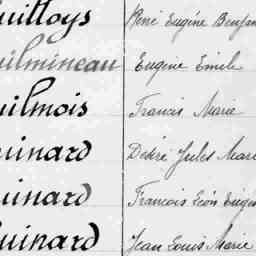 uilloys René Eugène Benjam
uilmineau Eugène Emile
uilmois Francis Marie
uinard Désiré Jules Mari
uinard François Léon Eugèn
uinard Jean Louis Marie